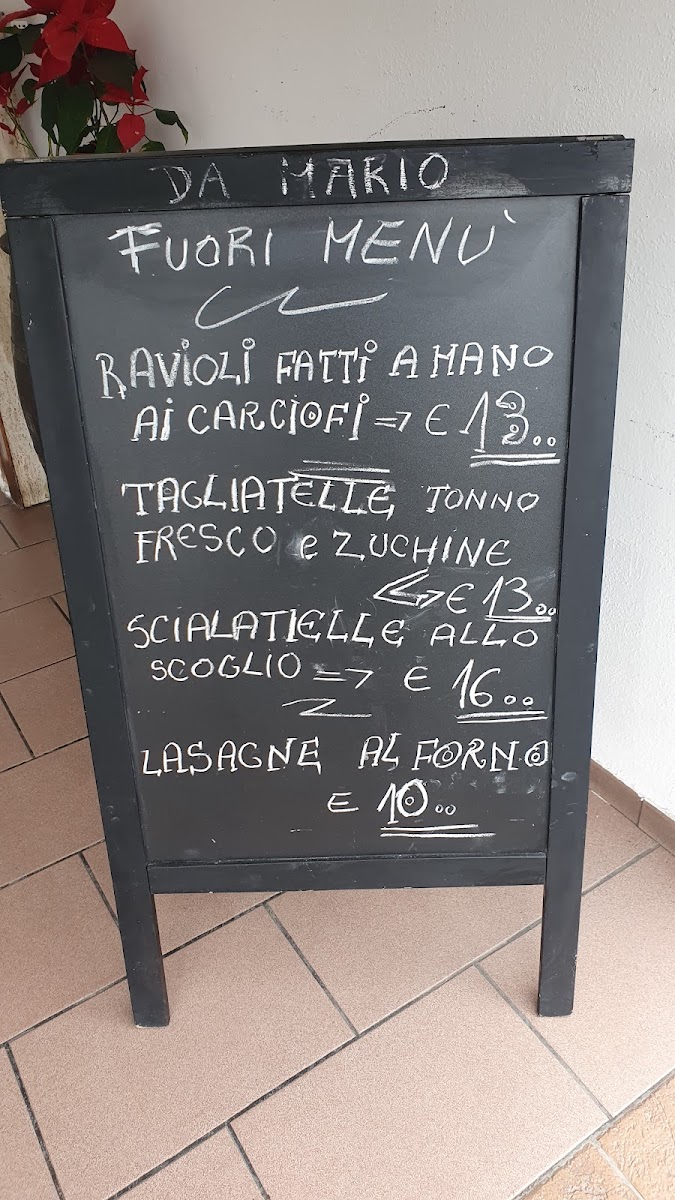 DA MARIO
FUORI MENÙ
RAVIOLI FATTI A MANO
AI CARCIOFI => € 13..
TAGLIATELLE TONNO
FRESCO e ZUCHINE
€ 13..
SCIALATIELLE ALLO
SCOGLIO => € 16..
LASAGNE AL FORNO
€ 10..